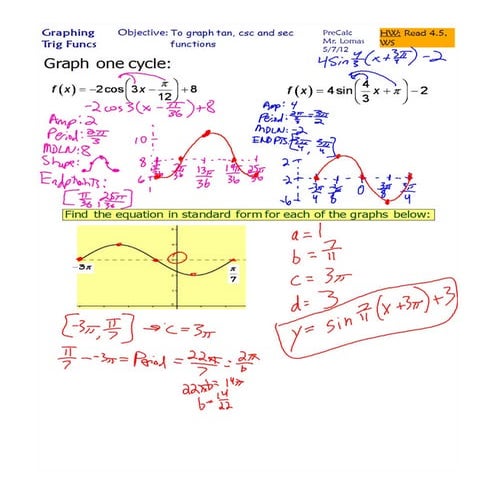 Graphing Trig Funcs
Objective: To graph tan, csc and sec functions
PreCalc
Mr. Lomas
5/7/12
HW: Read 4.5, WS
Graph one cycle:
4 sin 4/3 (x + 3π/4) - 2
f(x) = -2cos(3x - π/12) + 8
f(x) = 4sin(4/3 x + π) - 2
-2cos3(x - π/36) + 8
Amp: 2
Period: 2π/3
MDLN: 8
Shape:
Endpoints:
[π/36, 25π/36]
10
8
6
π/36 13π/36 19π/36 25π/36
Amp: 4
Period:
MDLN: -2
ENDPTS:
2
-2
-6
0
Find the equation in standard form for each of the graphs below:
-3π
π/7
a = 1
b = 7/11
c = 3π
d = 3
y = sin 7/11 (x + 3π) + 3
[-3π, π/7] ⇒ c = 3π
π/7 - -3π = Period = 22π/7 = 2π/b
22πb = 14π
b = 14/22